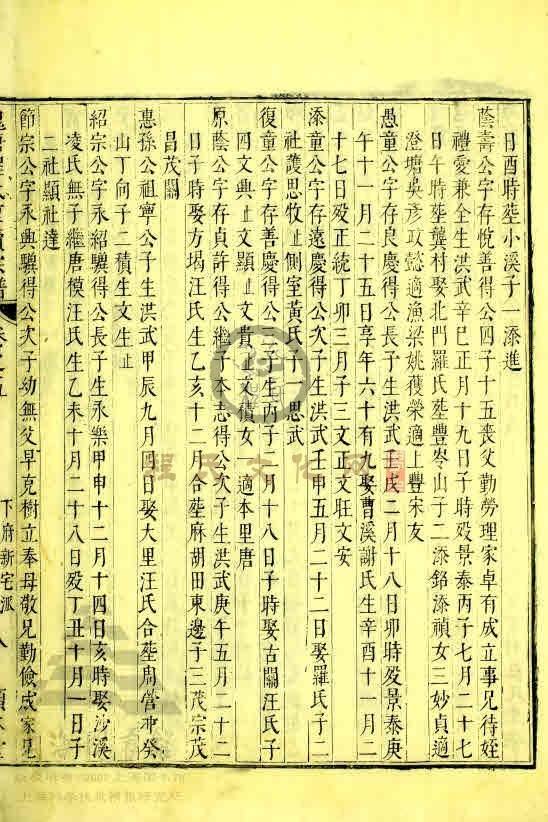 日酉時塟小溪子一添進
蔭壽公字存悅善得公四子十五丧父勤勞理家卓有成立事兄待姪
禮愛兼全生洪武辛巳正月十九日子時殁景泰丙子七月二十七
日午時塟龔村娶北門羅氏塟豐岑山子二添銘添禎女三妙貞適
澄塘吳彦政懿適漁梁姚獲榮適上豐宋友
愚童公字存良慶得公長子生洪武壬戌二月十八日卯時殁景泰庚
午十一月二十五日享年六十有九娶曹溪謝氏生辛酉十一月二
十七日殁正統丁卯三月子三文正文班文安
添童公字存遠慶得公次子生洪武壬申五月二十二日娶羅氏子二
社護思牧止側室黃氏子一思武
復童公字存善慶得公三子生丙子二月十八日子時娶古關汪氏子
四文興止文顯止文貴止文積女一適本里唐
原蔭公字存貞許得公繼子本志得公次子生洪武庚午五月二十二
日子時娶方塢汪氏生乙亥十二月合塟麻胡田東邊子三茂宗茂
昌茂關
惠孫公祖寧公子生洪武甲辰九月四日娶大里汪氏合塟周營冲癸
山丁向子二積生文生止
紹宗公字永紹驥得公長子生永樂甲申十二月十四日亥時娶沙溪
凌氏無子繼唐模汪氏生乙未十月二十八日殁丁丑十月一日子
二社顯社達
節宗公字永興驥得公次子幼無父早克樹立奉母敬兄勤儉成家兄
卷之五
下府新宅派
八